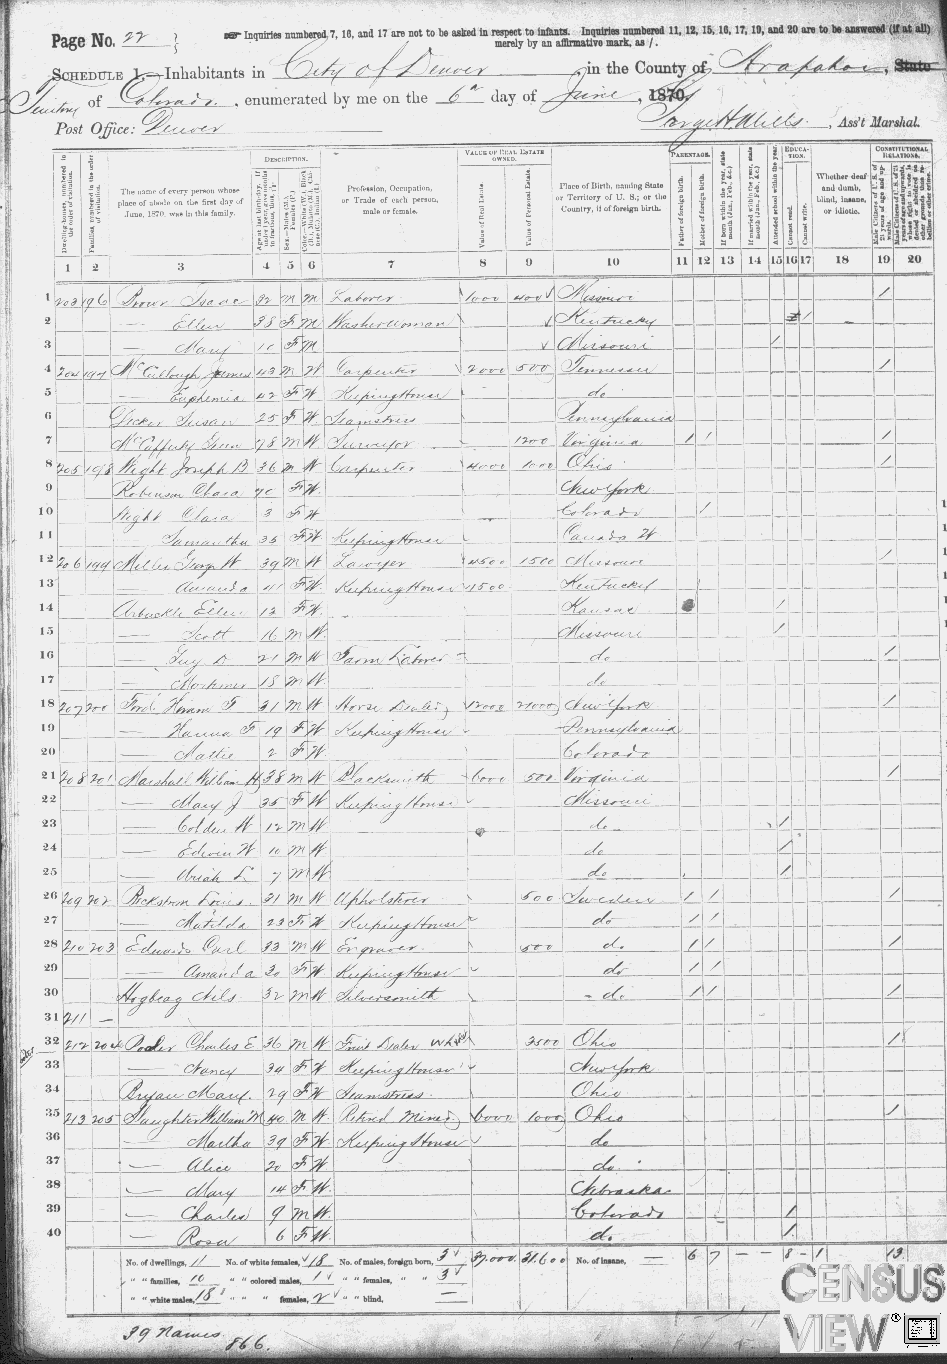 Page No. 22
Inquiries numbered 7, 16, and 17 are not to be asked in respect to infants. Inquiries numbered 11, 12, 15, 16, 17, 19, and 20 are to be answered (if at all)
merely by an affirmative mark, as /.
SCHEDULE 1.—Inhabitants in City of Denver, in the County of Arapahoe, State
Territory of Colorado, enumerated by me on the 6th day of June, 1870.
Post Office: Denver George H. Wells, Ass't Marshal.
DESCRIPTION. VALUE OF REAL ESTATE OWNED. PARENTAGE. EDUCATION. CONSTITUTIONAL RELATIONS.
Dwelling-houses, numbered in the order of visitation.
Families, numbered in the order of visitation.
The name of every person whose place of abode on the first day of June, 1870, was in this family.
Profession, Occupation, or Trade of each person, male or female.
Value of Real Estate.
Value of Personal Estate.
Place of Birth, naming State or Territory of U. S.; or the Country, if of foreign birth.
Father of foreign birth.
Mother of foreign birth.
Attended school within the year.
Cannot read.
Cannot write.
Whether deaf and dumb, blind, insane, or idiotic.
1 2 3 4 5 6 7 8 9 10 11 12 13 14 15 16 17 18 19 20
1 203 196 Brown Isaac 32 M M Laborer 1000 400 Missouri /
2 — Ellen 38 F M Washerwoman Kentucky /
3 — Mary 11 F M Missouri /
4 204 197 McCullough James 43 M W Carpenter 2000 500 Tennessee /
5 — Euphemia 42 F W Keeping House do
6 Decker Susan 25 F W Seamstress Pennsylvania
7 McCafferty Green 78 M W Surveyor 1200 Virginia / / /
8 205 198 Wight Joseph B 36 M W Carpenter 4000 1000 Ohio /
9 Robinson Clara 70 F W New York
10 Wight Clara 3 F W Colorado /
11 — Samantha 35 F W Keeping House Canada W
12 206 199 Miller George W 39 M W Lawyer 4500 1500 Missouri /
13 — Amanda 41 F W Keeping House 1500 Kentucky
14 Arbuckle Ellen 12 F W Kansas /
15 — Scott 16 M W Missouri /
16 — Guy D 21 M W Farm Laborer do /
17 — Mortimer 18 M W do
18 207 200 Ford Hiram F 31 M W Horse Dealer 12000 21000 New York /
19 — Hanna F 19 F W Keeping House Pennsylvania
20 — Mattie 2 F W Colorado
21 208 201 Marshall William H 38 M W Blacksmith 6000 500 Virginia /
22 — Mary J 35 F W Keeping House Missouri
23 — Colden W 12 M W do /
24 — Edwin W 10 M W do /
25 — Uriah L 7 M W do /
26 209 202 Backstrom Louis 31 M W Upholsterer 500 Sweden / / /
27 — Matilda 23 F W Keeping House do / /
28 210 203 Edwards Carl 33 M W Engraver 500 do / / /
29 — Amanda 30 F W Keeping House do / /
30 Hogbeag Nils 32 M W Silversmith do / / /
31 211 —
32 212 204 Charles E 36 M W Fruit Dealer 3500 Ohio /
33 — Nancy 34 F W Keeping House New York
34 Bryan Mary 29 F W Seamstress Ohio
35 213 205 Slaughter William M 40 M W Retired Miner 6000 1000 Ohio /
36 — Martha 39 F W Keeping House do
37 — Alice 20 F W do
38 — Mary 14 F W Nebraska
39 — Charles 9 M W Colorado /
40 — Rosa 6 F W do /
No. of dwellings, 11 No. of white females, 18 No. of males, foreign born, 3 37,000 31,600 No. of insane, — 6 7 — — 8 — 1 13
" " families, 10 " " colored males, 1 " " females, " 3
" " white males, 18 " " " females, 2 " " blind, —
39 Names
866
CENSUS
VIEW®